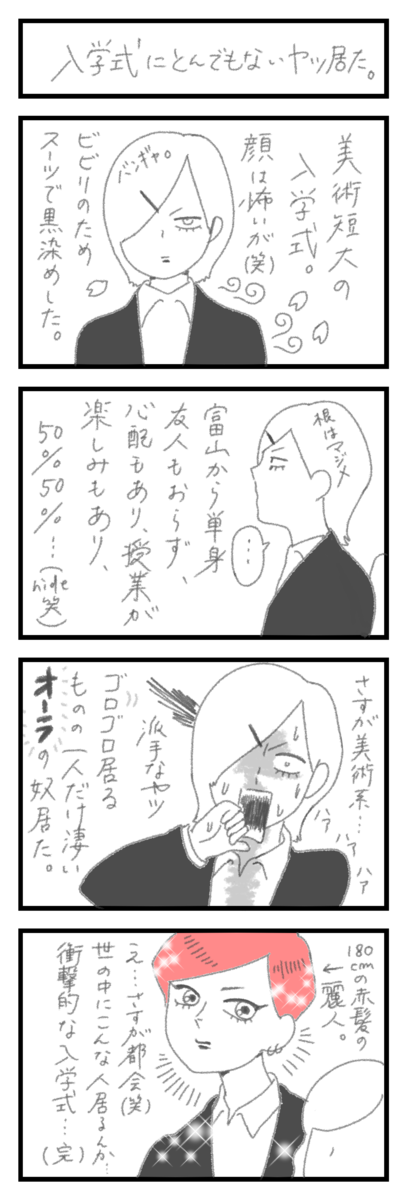 入学式にとんでもないヤツ居た。
美術短大の
入学式。
顔は怖いが(笑)
バンギャ。
ビビリのため
スーツで黒染めした。
根はマジメ
…
富山から単身
友人もおらず、
心配もあり、授業が
楽しみもあり、
50%50%…(hide笑)
さすが美術系…
ハァ ハァ ハァ
派手なヤツ
ゴロゴロ居る
ものの一人だけ凄い
オーラの奴居た。
180cmの赤髪の
←麗人。
え…さすが都会(笑)
世の中にこんな人居るんか…
衝撃的な入学式…(完)